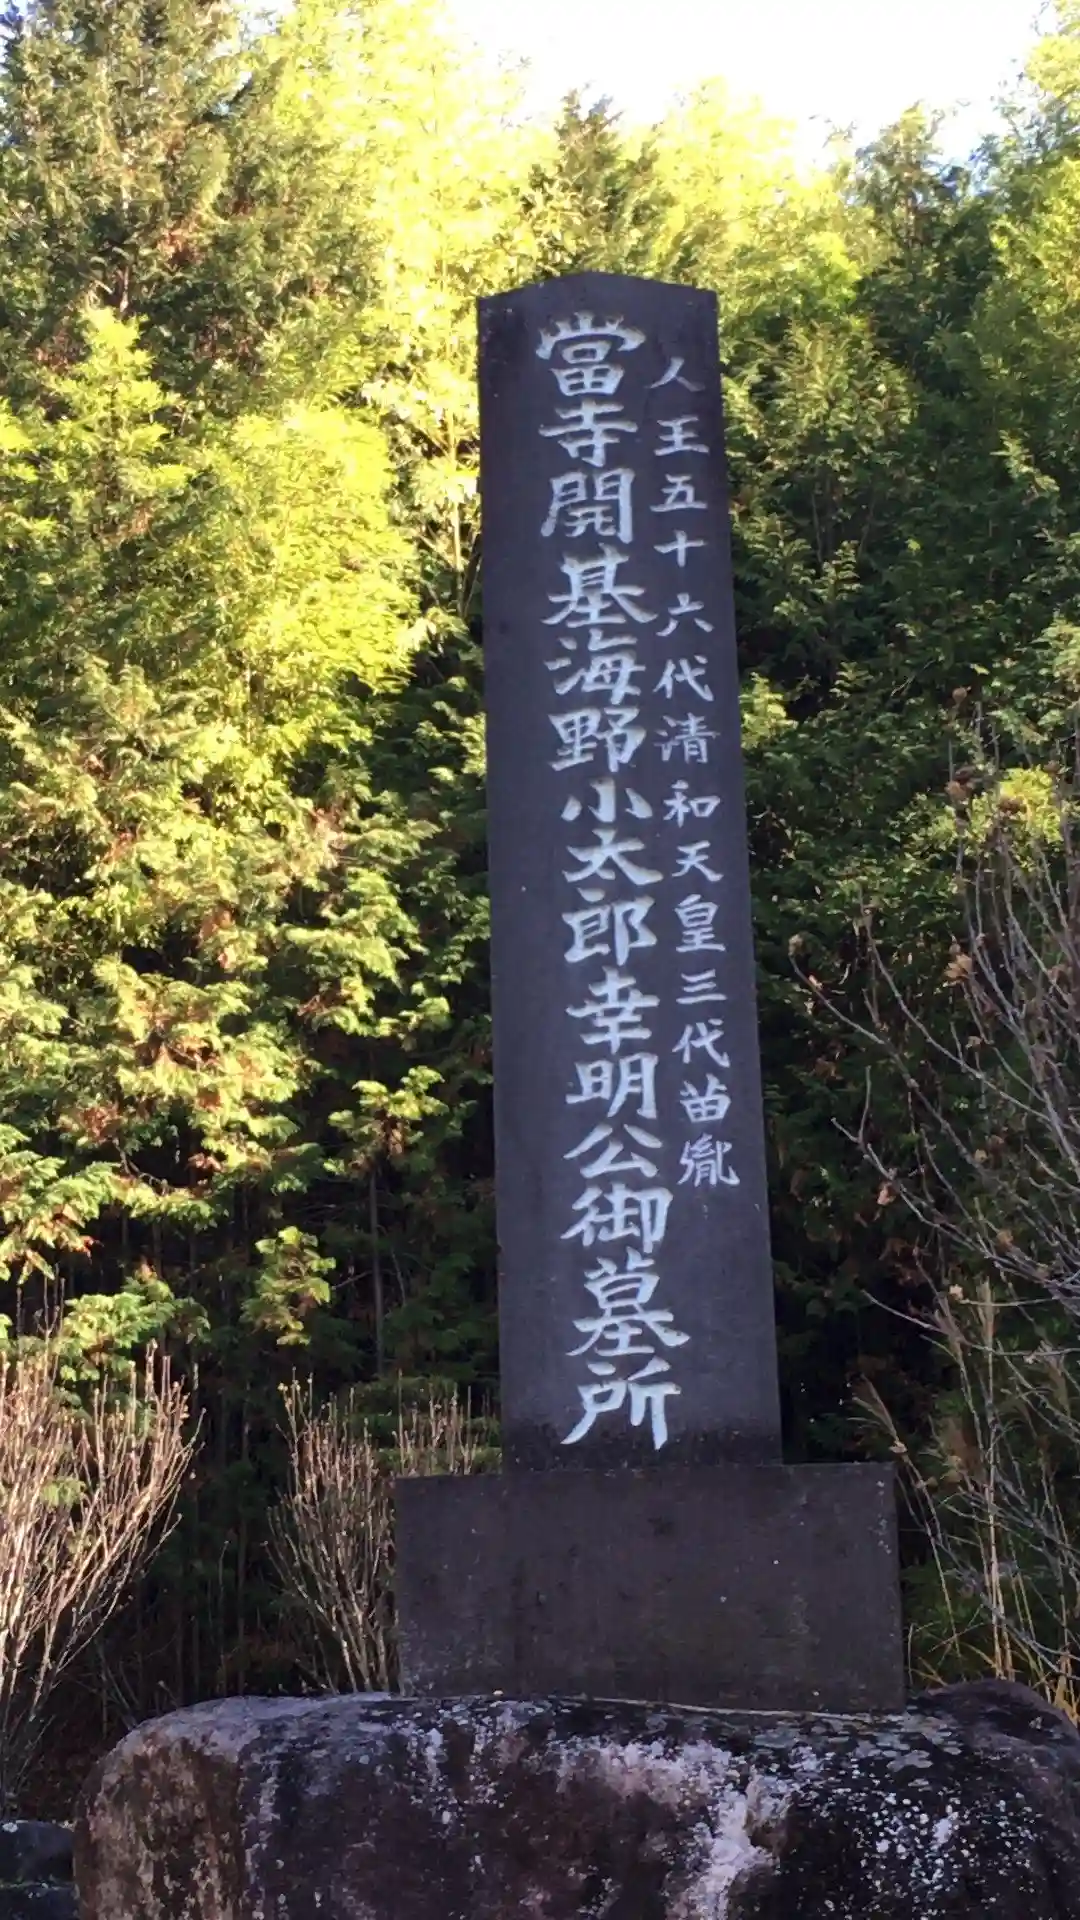 人王五十六代清和天皇三代苗胤
當寺開基海野小太郎幸明公御墓所